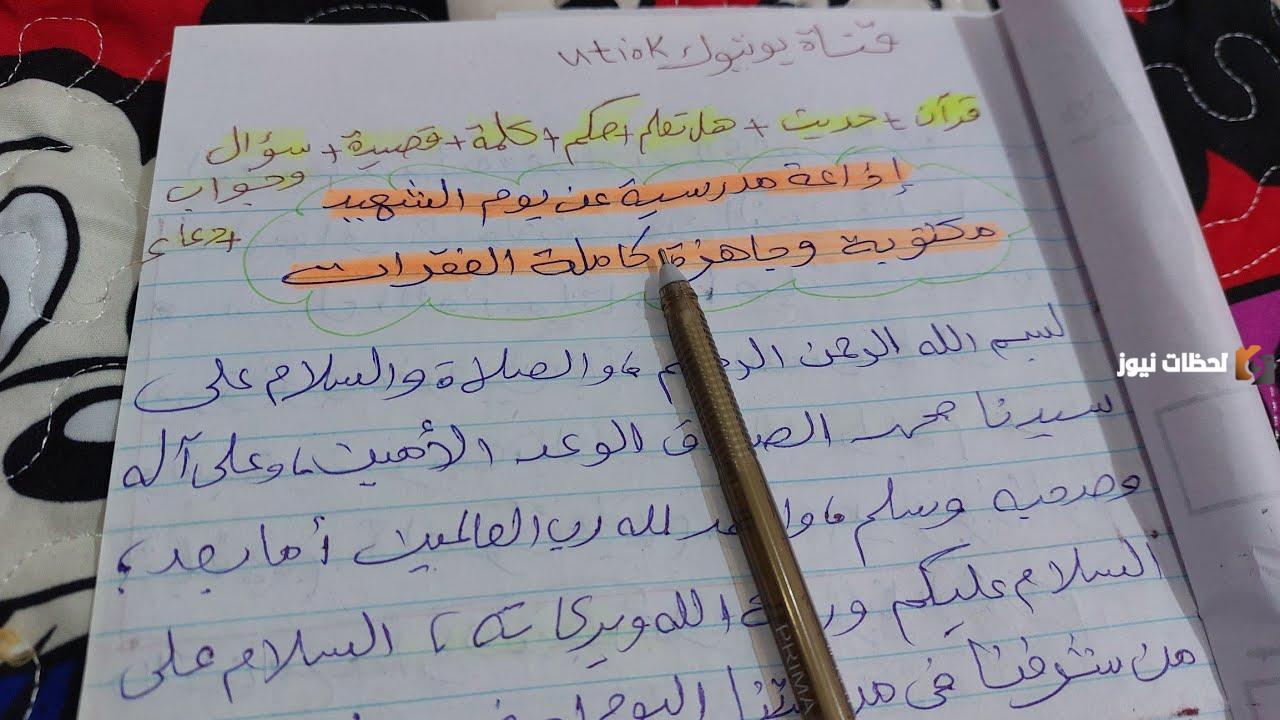 قناة يوتيوب utiok
قرآن + حديث + هل تعلم + حكم + كلمة + قصيدة + سؤال
وجواب
+ دعاء
إذاعة مدرسية عن يوم الشهيد
مكتوبة وجاهزة كاملة الفقرات
بسم الله الرحمن الرحيم، والصلاة والسلام على
سيدنا محمد الصادق الوعد الأمين، وعلى آله
وصحبه وسلم، والحمد لله رب العالمين أما بعد؛
السلام عليكم ورحمة الله وبركاته، السلام على
من شرفنا في مدرستنا اليوم
لحظات نيوز
PRIMA